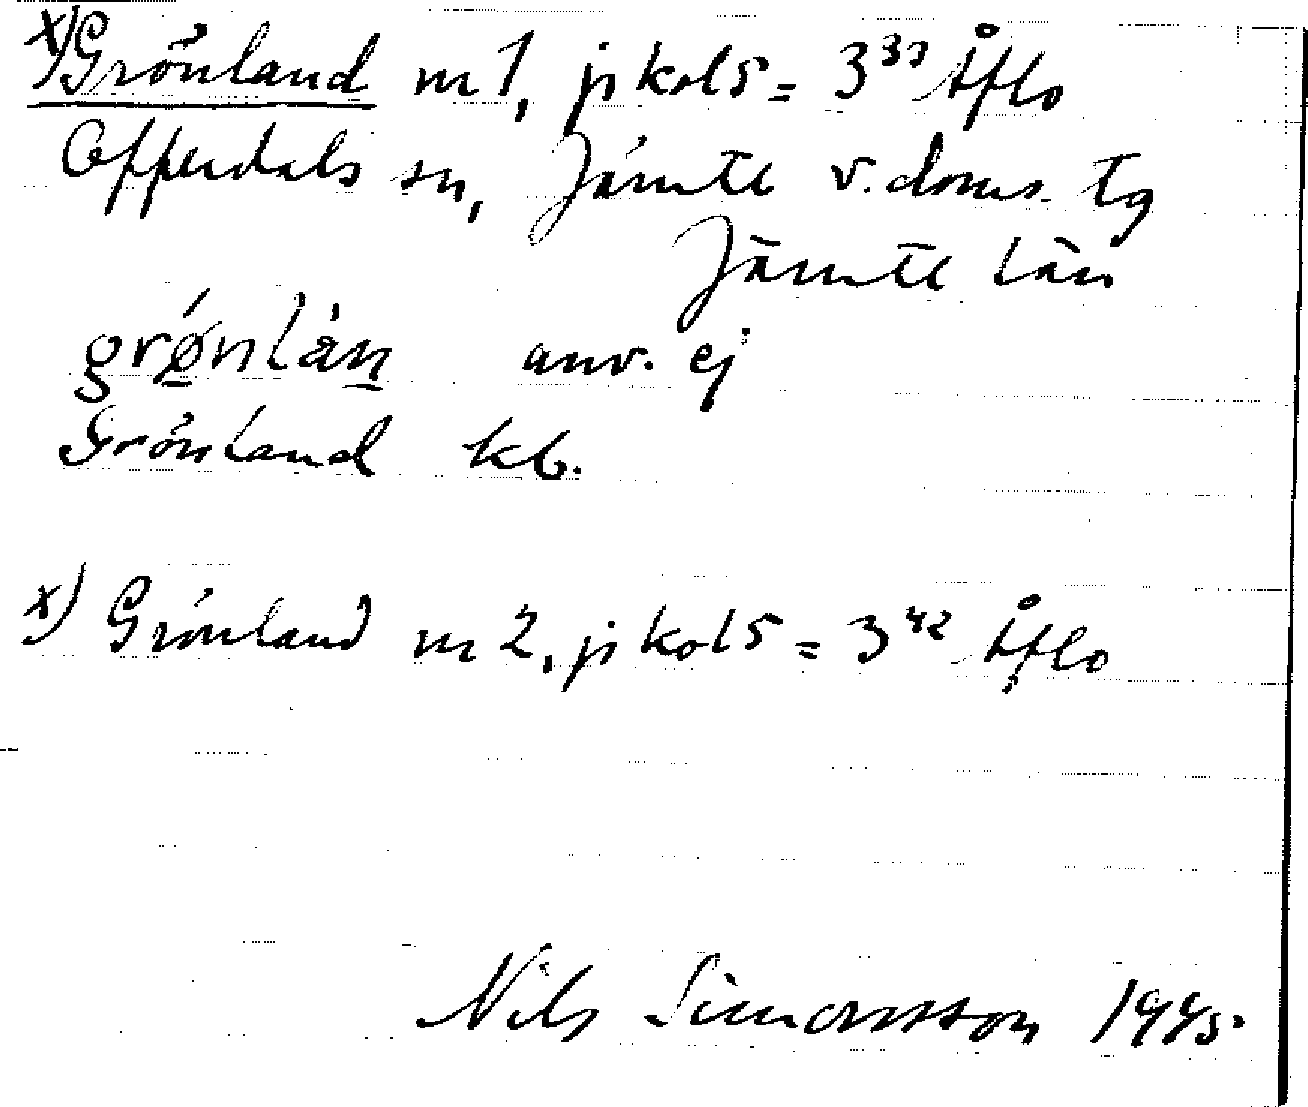 x) Grönland nr 1, jr kol 5 = 3³³ Åflo
Offerdals sn, Jämte v. doms. tg
Jämte län
grǿnlán anv. ej
Grönland kb.
x) Grönland nr 2, jr kol 5 = 3⁴² Åflo
Nils Simonsson 1945.